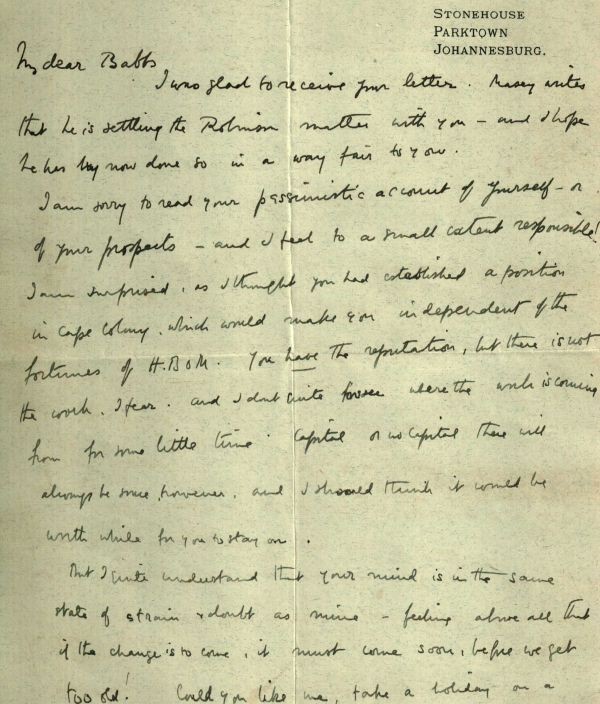 STONEHOUSE
PARKTOWN
JOHANNESBURG.
My dear Babbs
I was glad to receive your letter. Masey writes
that he is settling the Robinson matter with you – and I hope
he has by now done so in a way fair to you.
I am sorry to read your pessimistic account of yourself – or
of your prospects – and I feel to a small extent responsible!
I am surprised, as I thought you had established a position
in Cape Colony, which would make you independent of the
fortunes of H.B & M. You have the reputation, but there is not
the work, I fear. and I dont quite foresee where the work is coming
from for some little time. Capital or no Capital there will
always be some, however, and I should think it would be
worth while for you to stay on.
But I quite understand that your mind is in the same
state of strain & doubt as mine – feeling above all that
if the change is to come, it must come soon, before we get
too old! Could you like me, take a holiday on a